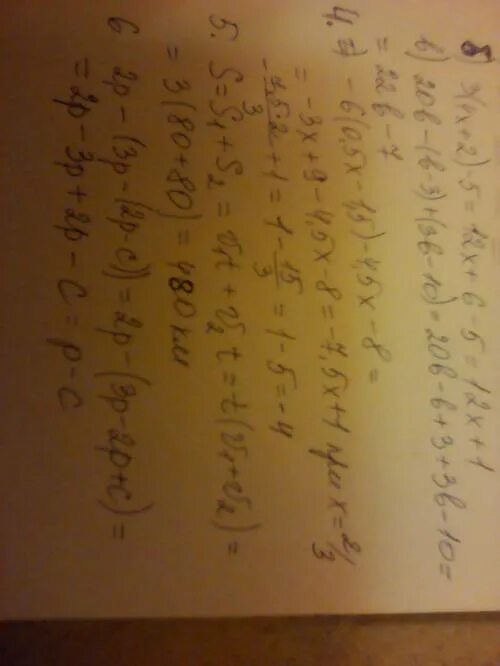 б) 3(4x+2)-5 = 12x+6-5 = 12x+1
в) 20в-(в-3)+(3в-10) = 20в-в+3+3в-10 =
= 22в-7
4. -6(0,5x-1,5)-4,5x-8 =
= -3x+9-4,5x-8 = -7,5x+1 при x = 2/3
-7,5·2/3 + 1 = 1 - 15/3 = 1-5 = -4
5. S = S₁+S₂ = v₁t+v₂t = t(v₁+v₂) =
= 3(80+80) = 480 км
6 2p-(3p-(2p-c)) = 2p-(3p-2p+c) =
= 2p-3p+2p-c = p-c